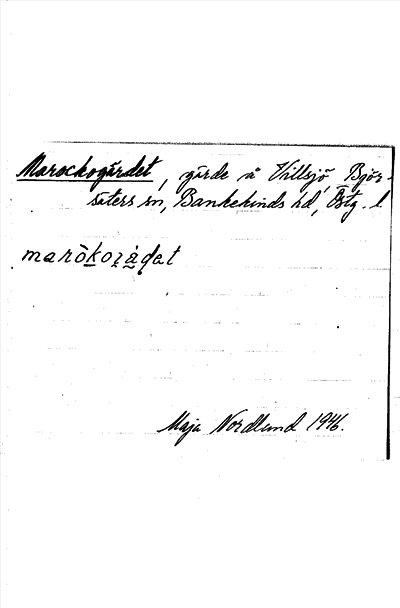 Marockogärdet, gärde å Villsjö, Björ-
säters sn, Bankekinds hd, Östg. l
Maja Nordlund 1946.